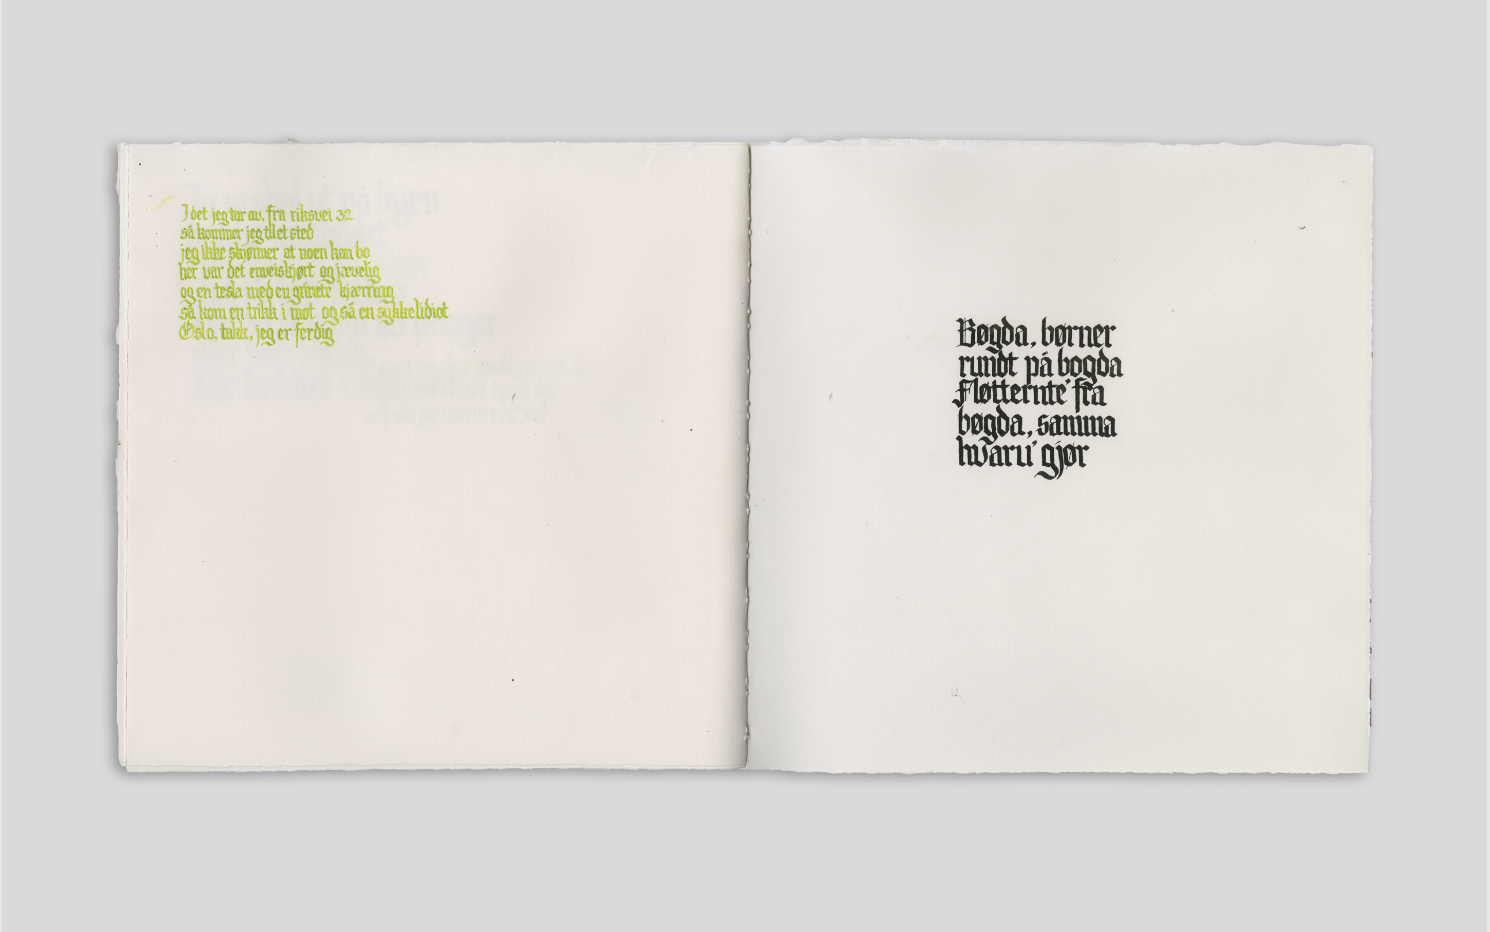 I det jeg tar av, fra riksvei 32
så kommer jeg til et sted
jeg ikke skjønner at noen kan bo
her var det enveiskjørt og jævelig
og en tesla med en grinete kjærring
så kom en trikk i mot og så en sykkelidiot
Oslo, takk, jeg er ferdig
Bøgda, børner
rundt på bogda
Fløtternte' fra
bøgda, samma
hvaru' gjør